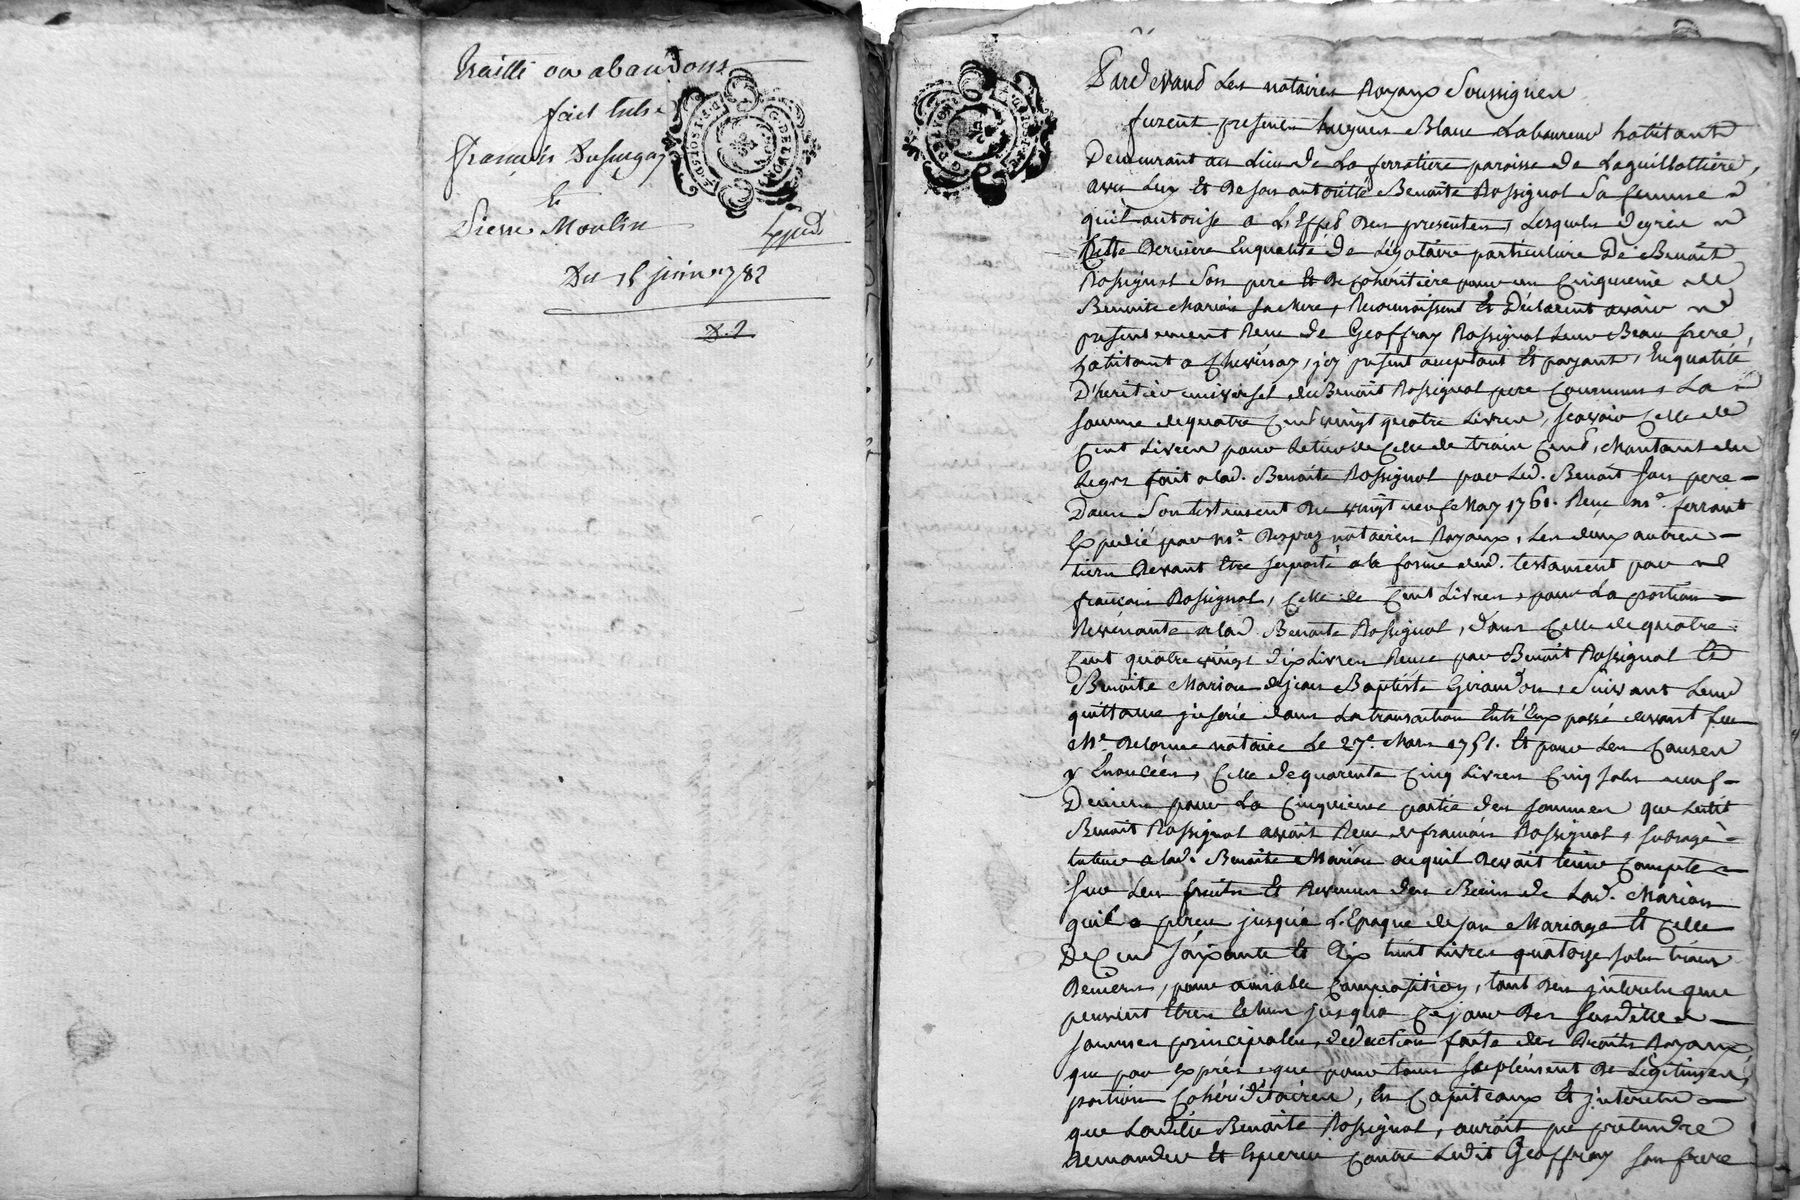 Traitté ou abandons
fait entre
François Dufurgay
Et
Pierre Moulin
Expédié
Du 15 juin 1782
G. DE LYON
Pardevand Les notaires Royaux Soussignés
furent presents hugues Blanc Laboureur habitant
Demeurant au Lieu de La ferratiere paroisse de Laguillottiere,
avec Luy Et de son autorité Benoite Rossignol Sa femme
qu'il autorise a L'Effet Des presentes, Lesquels degréés
Cette Derniere Enqualité de Légataire particuliere De Benoit
Rossignol Son pere Et De Cohéritiere pour un Cinquieme de
Benoite Marion sa Mere, Reconnaissent Et Déclarent avoir
presentement Reçu de Geoffray Rossignol Leur Beau frere,
habitant a Chevissay, icy present acceptant Et payant, Enqualité
D'héritier universel du Benoit Rossignol pere Commun, La
somme de quatre Cent vingt quatre Livres, scavoir Celle de
Cent Livres pour Le tier de Celle de trois Cent, Montant du
Legs fait alad. Benoite Rossignol par Led. Benoit Son pere
Dans Son testament Du vingt neuf May 1761. Reçu me. ferrant
Expedié par me. Desprez notaires Royaux, Les deux autres
tiers Devant Etre suporté a la forme dud. testament par
françois Rossignol, Celle de Cent Livres, pour La portion
Revenante alad. Benoite Rossignol, dans Celle de quatre
Cent quatre vingt dix Livres Reçue par Benoit Rossignol Et
Benoite Marion de jean Baptiste Giraudon, Suivant Leur
quittance jnserée dans La transaction Entr'Eux passé devant feu
Me. Delorme notaire Le 27e. Mars 1751. Et pour Les Causes
y Enoncées, Celle de quarente Cinq Livres Cinq sols neuf
Deniers pour La Cinquieme partie des sommes que Ledit
Benoit Rossignol avait Reçu de françois Rossignol,
tuteur alad. Benoite Marion ou quil Devait tenir Compte
sur Les fruits Et Revenus des Biens de Lad. Marion
quil a perçu jusqu'a L'Epoque de son Mariage Et Celle
De Cen soixante Et Dix huit Livres quatorze sols trois
Deniers, pour amiable Composition, tant Des jnterets que
peuvent Etres Echus jusqu'a Ce jour Des Susdittes
sommes principales, deduction faite des Droits Royaux,
que par Exprès, que pour tous Suplément De Légitimes,
portions Cohéréditaires, En Capiteaux Et jnterets
que Laditte Benoite Rossignol, aurait pu pretendre
Demander Et Esperer Contre Ledit Geoffray son frere